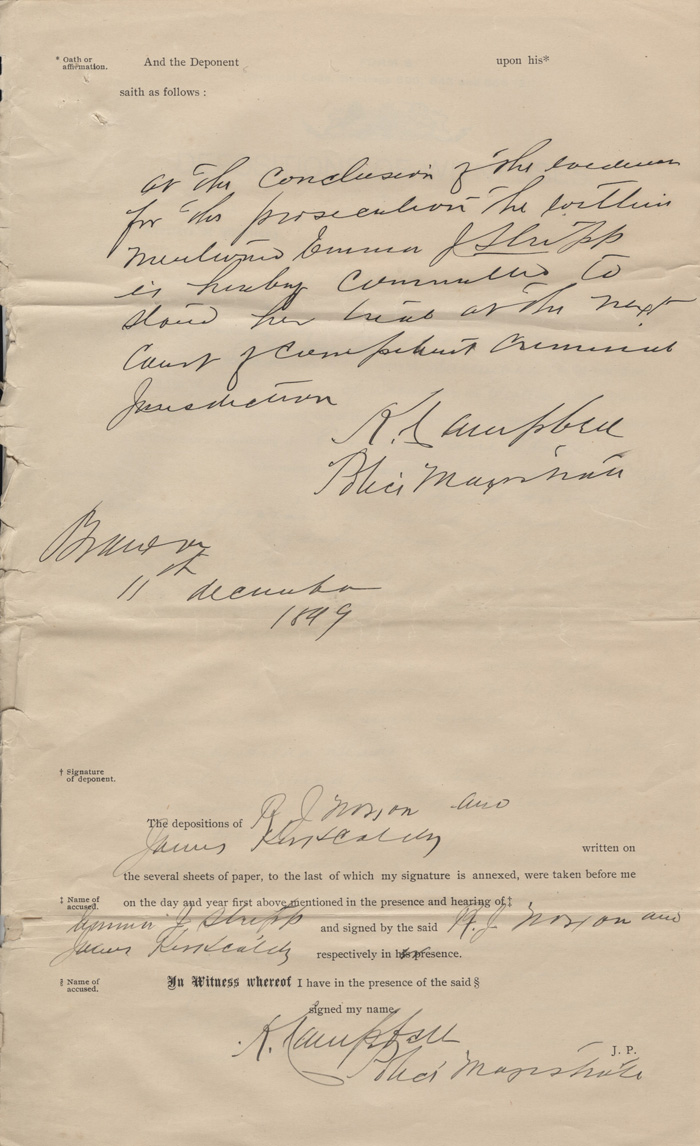 * Oath or affirmation.
And the Deponent upon his*
saith as follows :
at the conclusion of the evidence
for the prosecution the within
mentioned Emma J Stripp
is hereby committed to
stand her trial at the next
Court of competent Criminal
Jurisdiction
K. Campbell
Police Magistrate
Brandon
11th December
1899
† Signature of deponent.
The depositions of R J Noxon and
James Kirkcaldy written on
the several sheets of paper, to the last of which my signature is annexed, were taken before me
‡ Name of accused.
on the day and year first above mentioned in the presence and hearing of‡
Emma J Stripp and signed by the said R. J. Noxon and
James Kirkcaldy respectively in presence.
§ Name of accused.
In Witness whereof I have in the presence of the said §
signed my name.
K. Campbell
J. P.
Police Magistrate